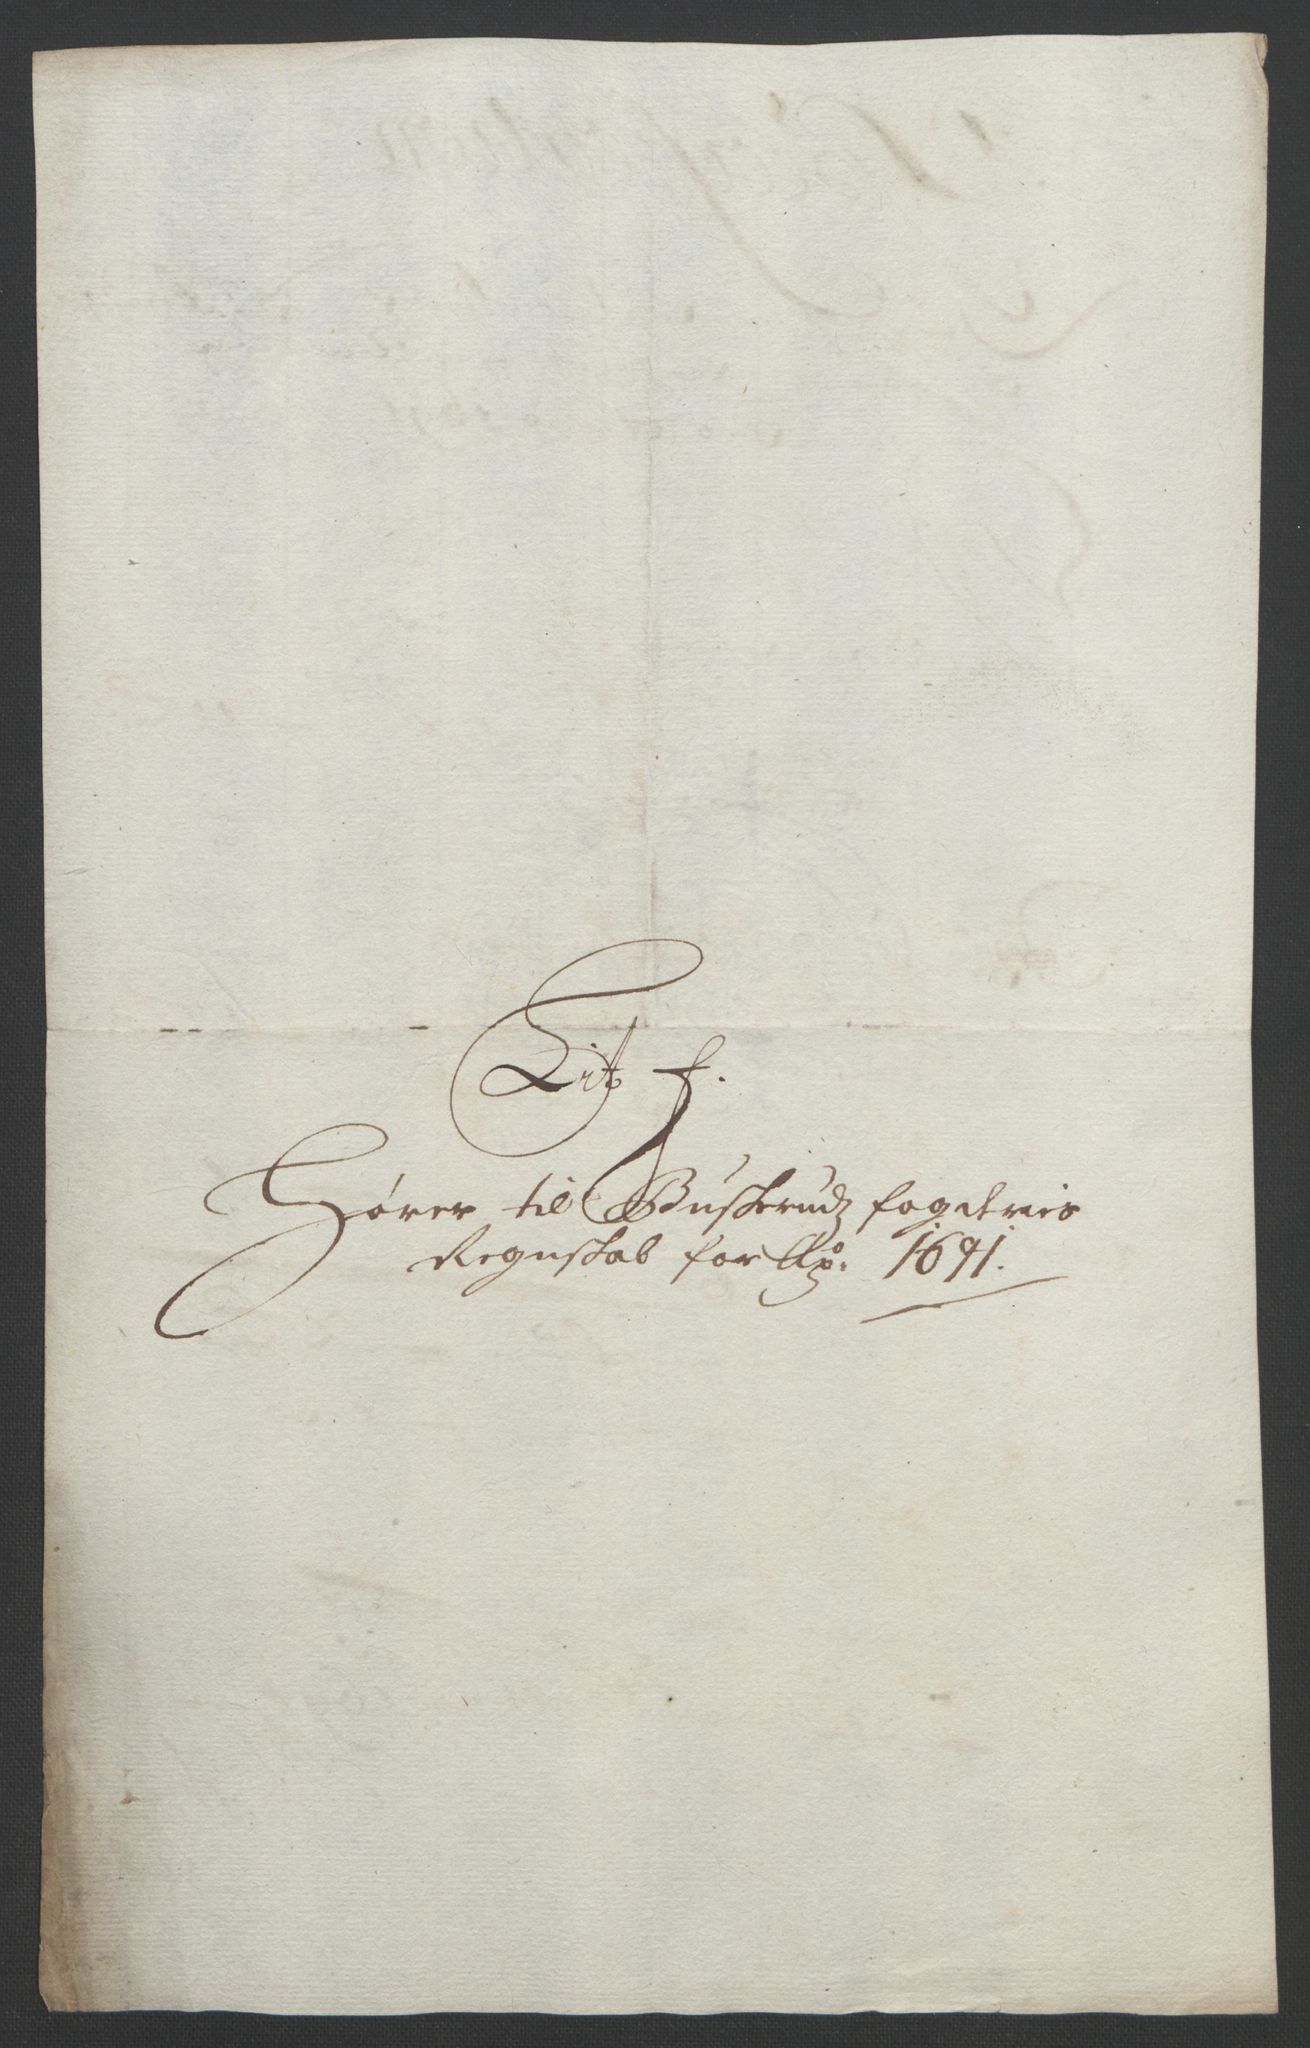 Lit f.
Hører til Buskerudz fogderies
Regnskab for Ao: 1691.